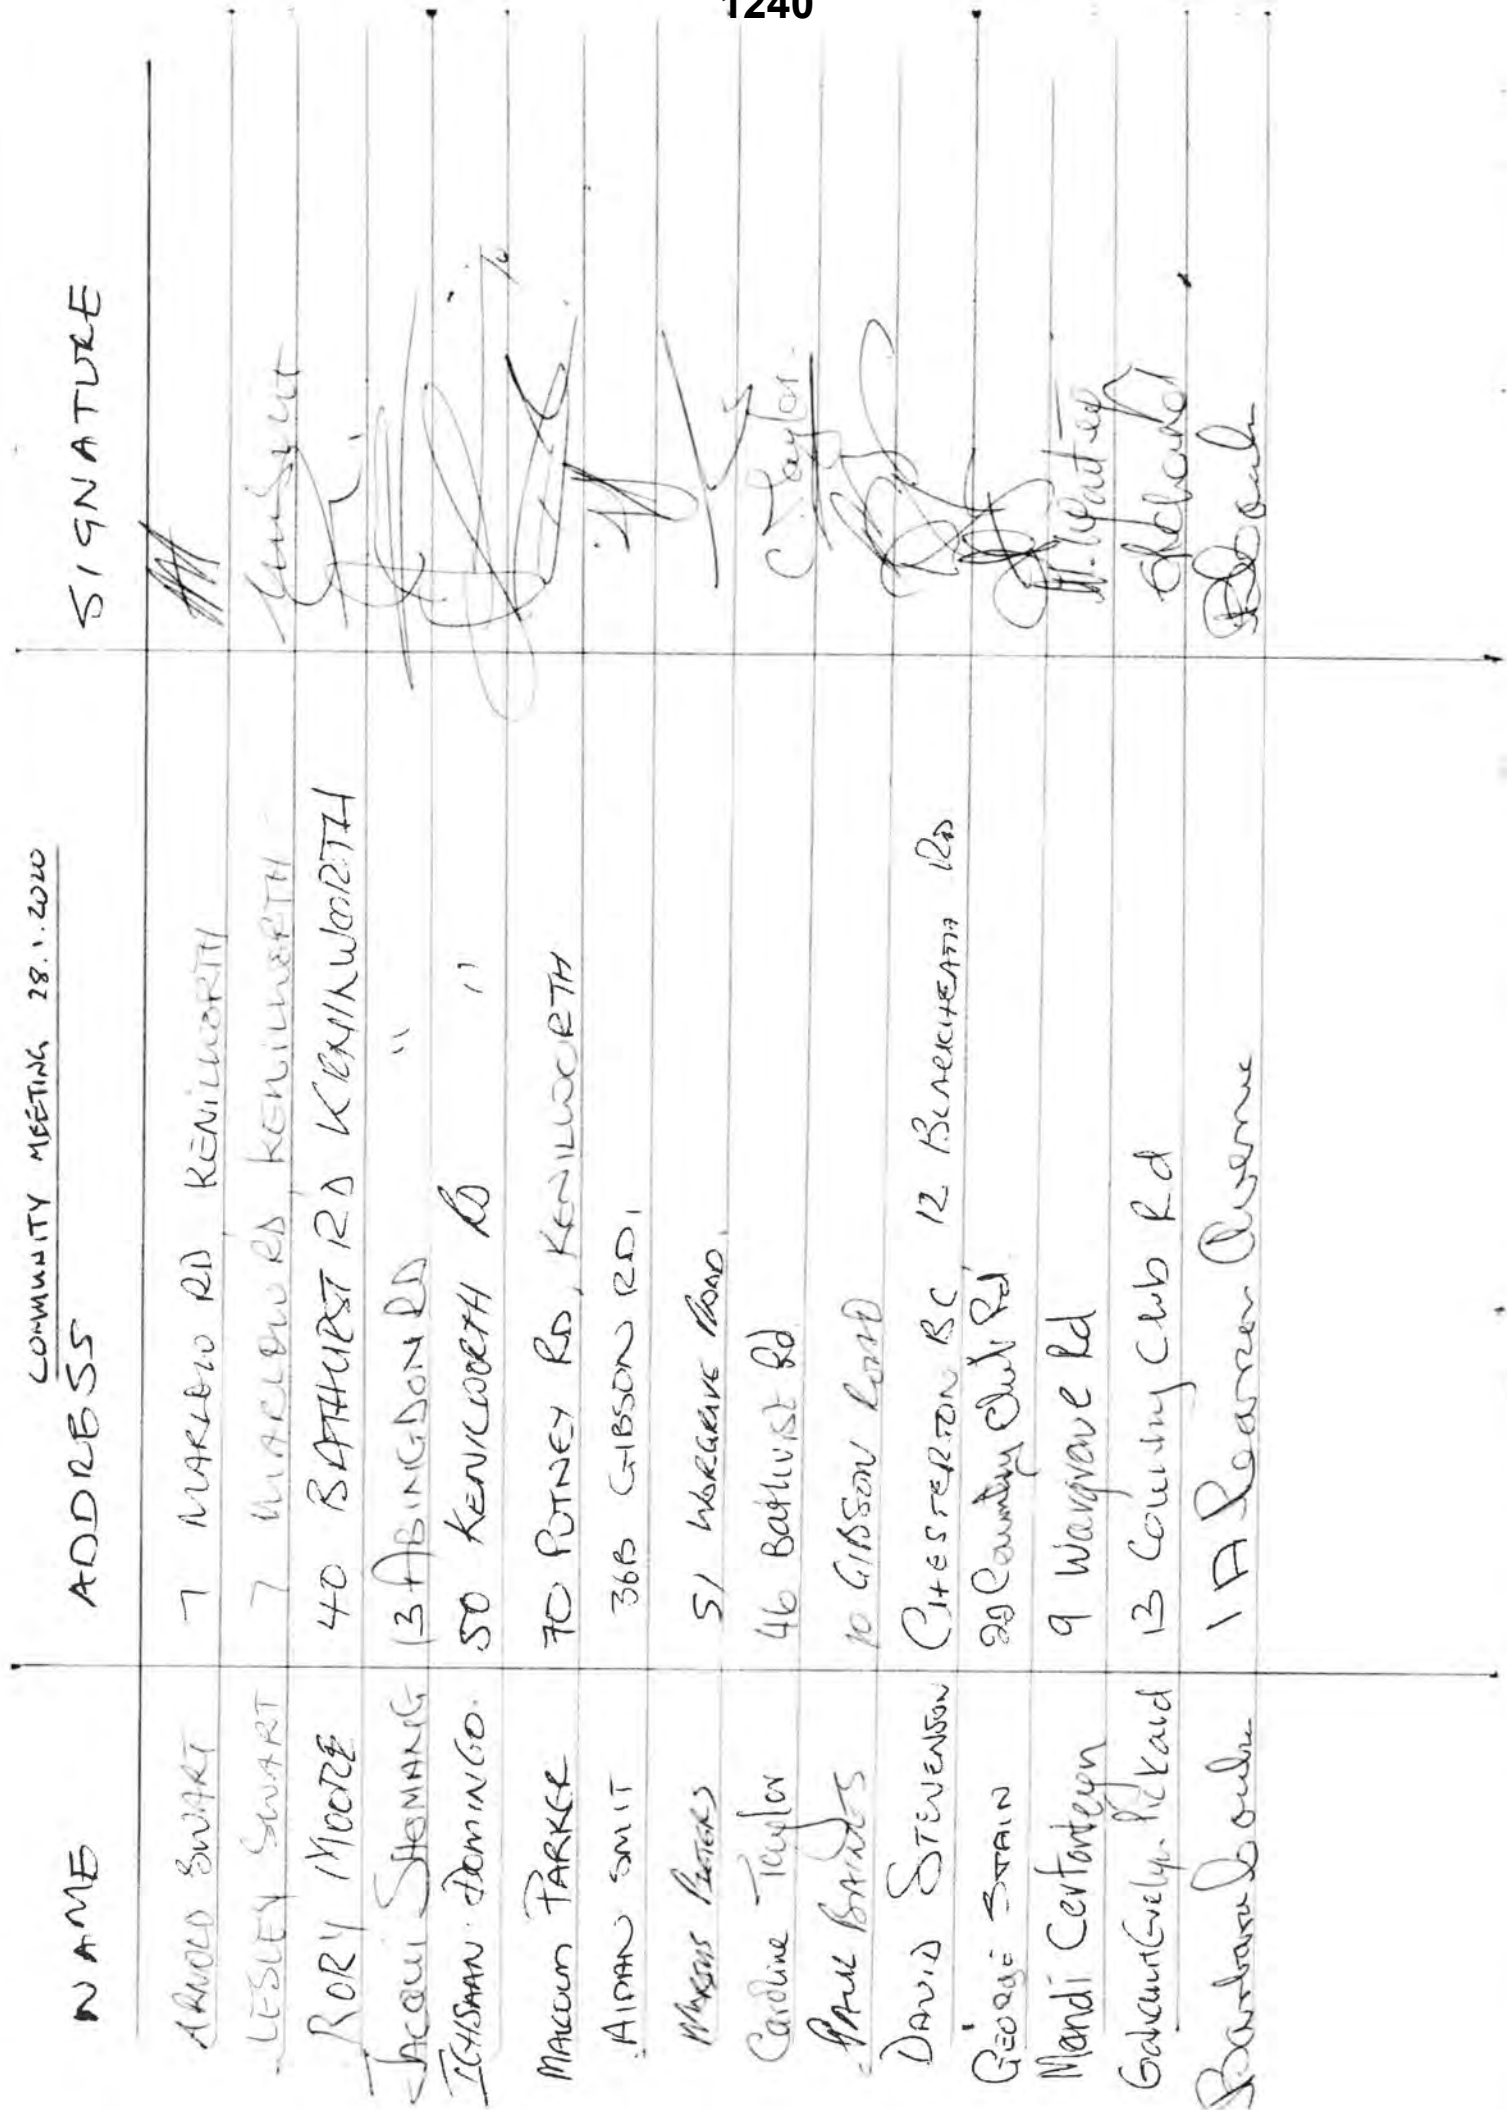 1240
COMMUNITY MEETING 28.1.2020
NAME ADDRESS SIGNATURE
ARNOLD SWART 7 MARLOW RD KENILWORTH
LESLEY SWART 7 MARLOW RD, KENILWORTH
RORY MOORE 40 BATHURST RD KENILWORTH
JACQUI SHOMANG 13 ABINGDON RD "
ICHSAAN DOMINGO. 50 KENILWORTH RD "
MALCOLM PARKER 70 PUTNEY RD, KENILWORTH
AIDAN SMIT 36B GIBSON RD,
PETERS 51 WARGRAVE ROAD.
Caroline Taylor 46 Bathurst Rd C. Taylor.
PAUL 10 GIBSON ROAD
DAVID STEVENSON CHESTERTON BC 12 BLACKHEATH RD
GEORGE STAIN Country Club Rd
Mandi 9 Wargrave Rd
Graham Evelyn Pickard 13 Country Club Rd
Barbara 1A Pearson Avenue